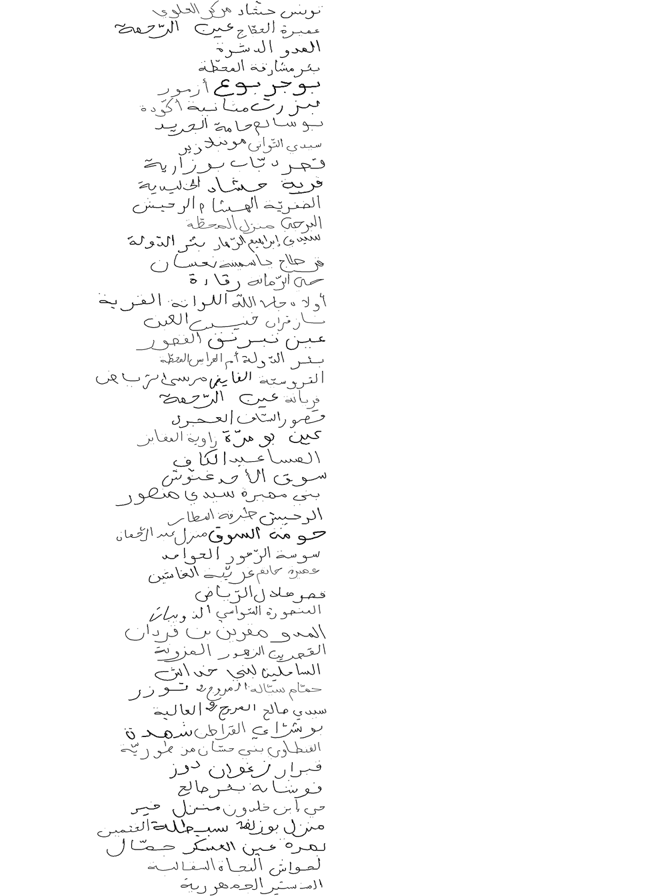 تونس حشاد مركز العلوي
عميرة الحجّاج عين الرّحمة
المدو الدشرة
بئر مشارقة المحطّة
بوجربوع أرمور
بنزرت منانية أكودة
بو سالم حامة الجريد
سيدي التواتي مونبليزير
قصر دبّاب بوزارية
قرية حشاد الخليدية
الصخريّة الهيشام الرحيش
البرجين منزل المحطّة
سيدي إبراهيم الزّهار بئر الدّولة
نعسان
حي الرّمانة رقادة
أولاد جاب اللّه اللواتة القرية
خنيس العين
عين نبرنق القصور
بئر الدّولة أم العرايس المحطّة
الفروسية الفايض مرسى الرياض
فريانة عين الرّحمة
قصور الساف
عين بو مرّة زاوية
المساعيد الكاف
سوق الأحد غنّوش
بني مهيرة سيدي منصور
الرحيش طبرقة المطار
حومة السوق منزل عبد الرّحمان
سوسة الزّهور العوامد
عميرة حاتم عريّة
قصر هلال الرّياض
المنصورة الشوامي الذويبات
المدو مقرين بن قردان
القصرين الزهور المزونة
الساحلين بني خداش
حمّام سنّالة المروج 2 توزر
سيدي صالح المروج 2 العالية
بو شراي القراطن شهدة
القيطاون بني حسّان
قيرار زغوان دوز
فوشانة بئر صالح
حي ابن خلدون منزل خير
منزل بوزلفة سبيطلة
نصرة عين العسكر حمّال
لحواش النجاة السقالبة
المنستير الجمهورية